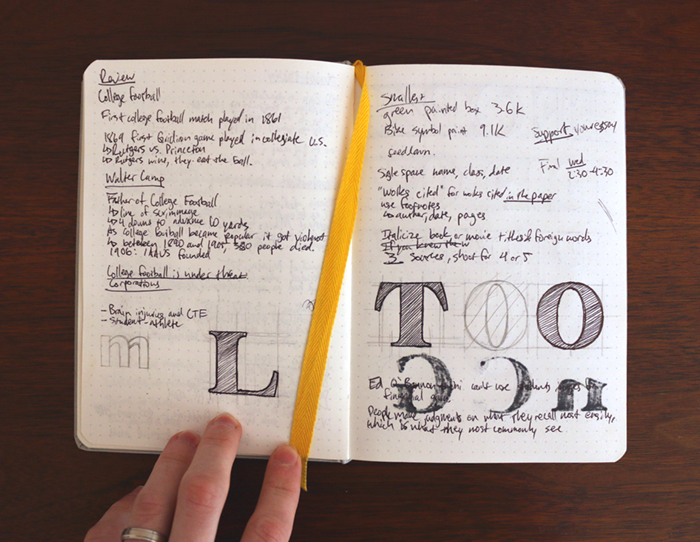 Review
College Football
First college football match played in 1861
1869 first gridiron game played in collegiate U.S.
↳ Rutgers vs. Princeton
↳ Rutgers wins, they eat the ball.
Walter Camp
Father of College Football
↳ line of scrimmage
↳ 4 downs to advance 10 yards
As college football became popular it got violent
↳ between 1890 and 1905, 330 people died.
1906: IAAUS founded
College Football is under threat
Corporations
- Brain injuries and CTE
- Student-athlete
m
L
Smallest
green painted box 3.6K
Bike symbol paint 9.1K
Support
seedlawn.
Final Wed
2:30-4:30
Single space name, class, date
"works cited" for works cited in the paper
use footnotes
↳ author, date, pages
Italicize book, or movie titles & foreign words
If you knew the
3 sources, shoot for 4 or 5
T O O
G C n
Ed can't use
financial
People make judgments on what they recall most easily,
which is what they most commonly see.